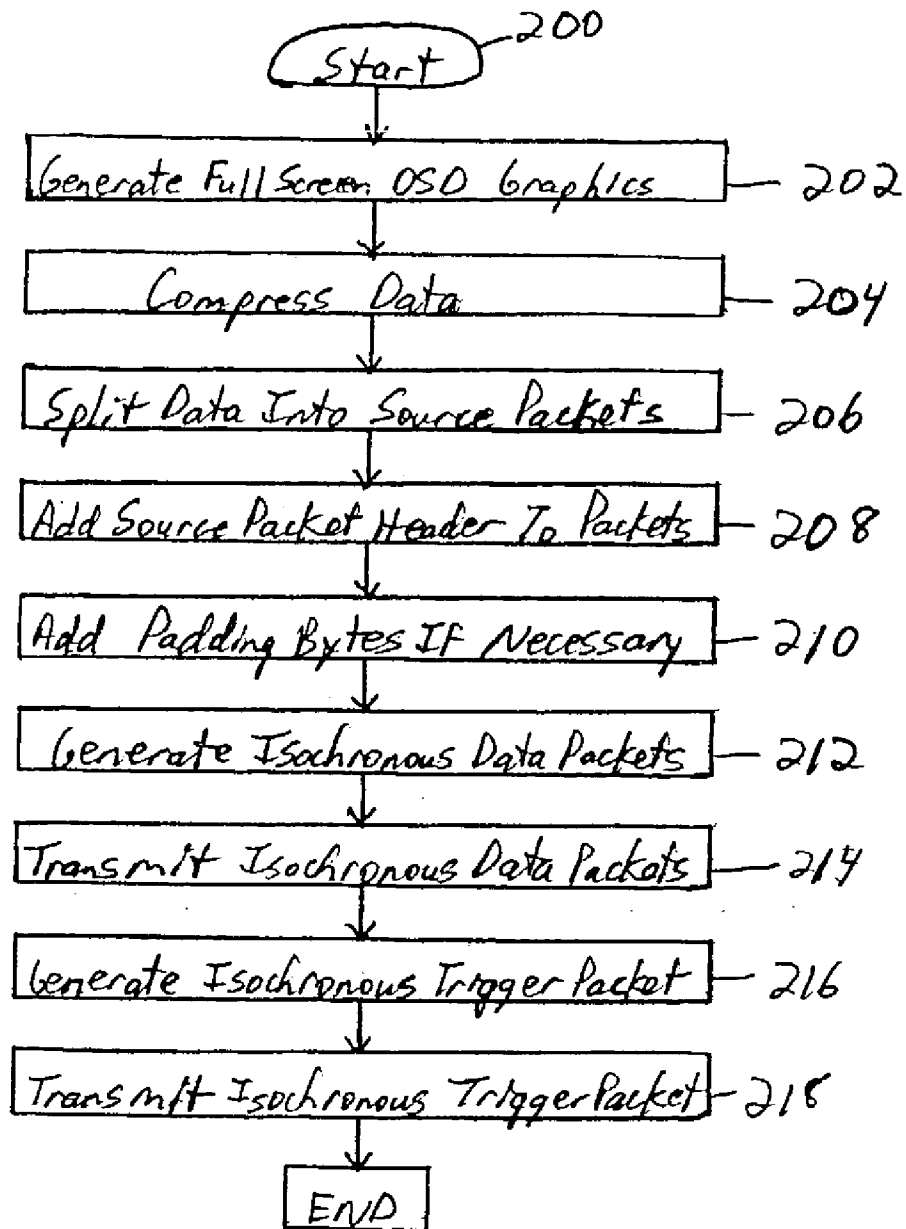 200
Start
Generate Full Screen OSD Graphics 202
Compress Data 204
Split Data Into Source Packets 206
Add Source Packet Header To Packets 208
Add Padding Bytes If Necessary 210
Generate Isochronous Data Packets 212
Transmit Isochronous Data Packets 214
Generate Isochronous Trigger Packet 216
Transmit Isochronous Trigger Packet 218
END